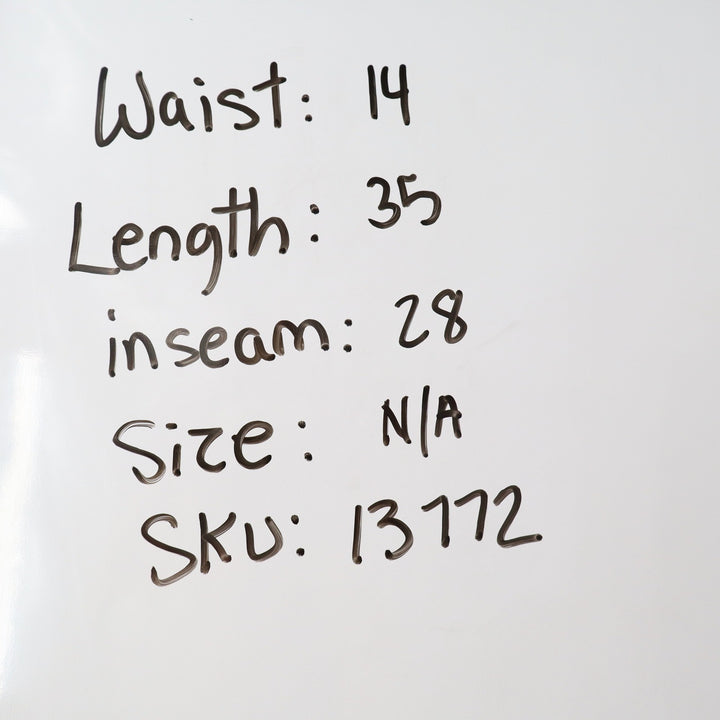 Waist: 14
Length: 35
inseam: 28
Size: N/A
SKU: 13772